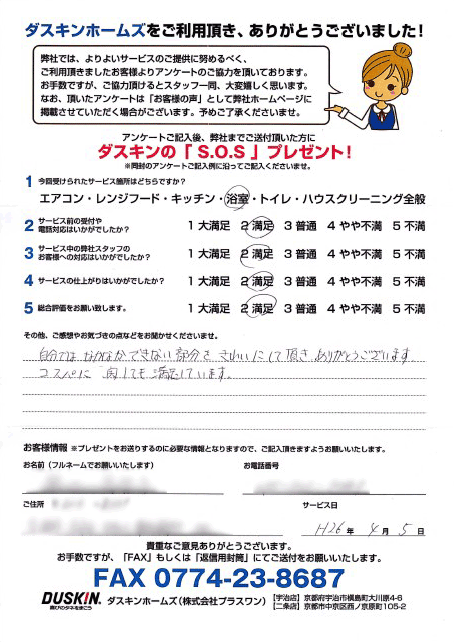 ダスキンホームズをご利用頂き、ありがとうございました！
弊社では、よりよいサービスのご提供に努めるべく、
ご利用頂きましたお客様よりアンケートのご協力を頂いております。
お手数ですが、ご協力頂けるとスタッフ一同、大変嬉しく思います。
なお、頂いたアンケートは「お客様の声」として弊社ホームページに
掲載させていただく場合がございます。予めご了承くださいませ。
アンケートご記入後、弊社までご送付頂いた方に
ダスキンの「 S.O.S 」プレゼント！
※同封のアンケートご記入例に沿ってご記入くださいませ。
1 今回受けられたサービス箇所はどちらですか？
エアコン・レンジフード・キッチン・浴室・トイレ・ハウスクリーニング全般
2 サービス前の受付や
電話対応はいかがでしたか？ 1 大満足 2 満足 3 普通 4 やや不満 5 不満
3 サービス中の弊社スタッフの
お客様への対応はいかがでしたか？ 1 大満足 2 満足 3 普通 4 やや不満 5 不満
4 サービスの仕上がりはいかがでしたか？ 1 大満足 2 満足 3 普通 4 やや不満 5 不満
5 総合評価をお願い致します。 1 大満足 2 満足 3 普通 4 やや不満 5 不満
その他、ご感想やお気づきの点などをお聞かせくださいませ。
自分では なかなかできない部分を きれいにして頂き ありがとうございます
コスパに 関しても 満足しています。
お客様情報 ※プレゼントをお送りするのに必要な情報となりますので、ご記入頂きますようお願いいたします。
お名前（フルネームでお願いいたします） お電話番号
ご住所 サービス日
H26 年 4 月 5 日
貴重なご意見ありがとうございます。
お手数ですが、「FAX」もしくは「返信用封筒」にてご送付をお願いいたします。
FAX 0774-23-8687
DUSKIN 喜びのタネをまこう ダスキンホームズ（株式会社プラスワン） 【宇治店】京都府宇治市槇島町大川原4-6
【二条店】京都市中京区西ノ京原町105-2